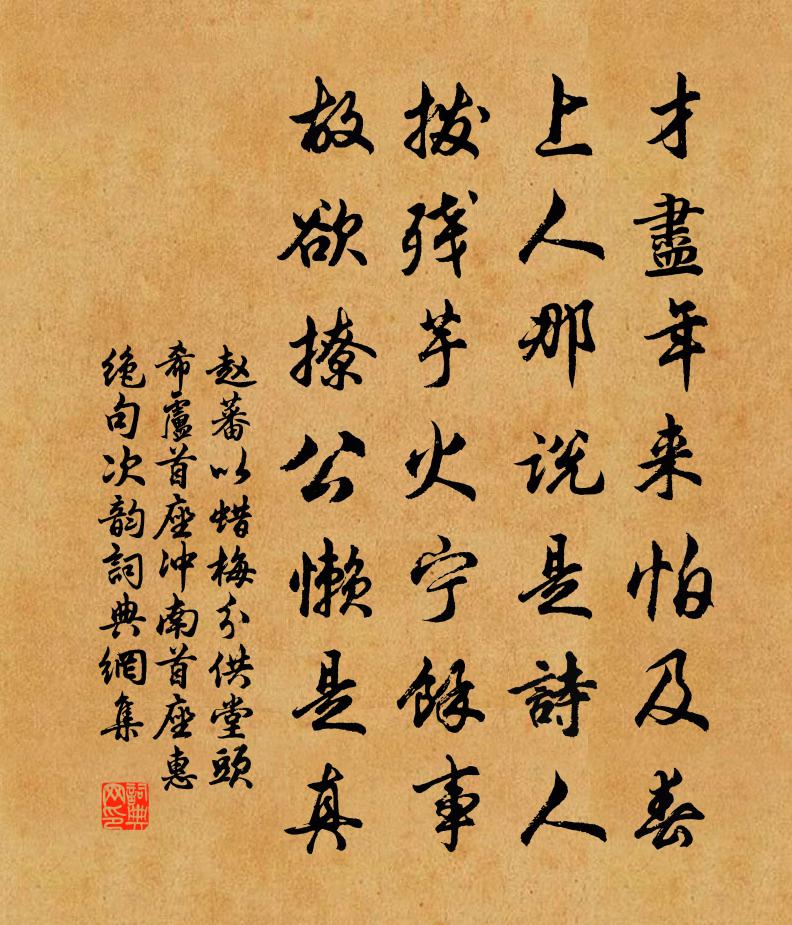 才盡年来怕及春
上人那说是詩人
拨残芋火宁餘事
故欲撩公懒是真
赵蕃以蜡梅分供堂頭
希廬首座冲南首座惠
绝句次韵詞典網集
詞典
网印